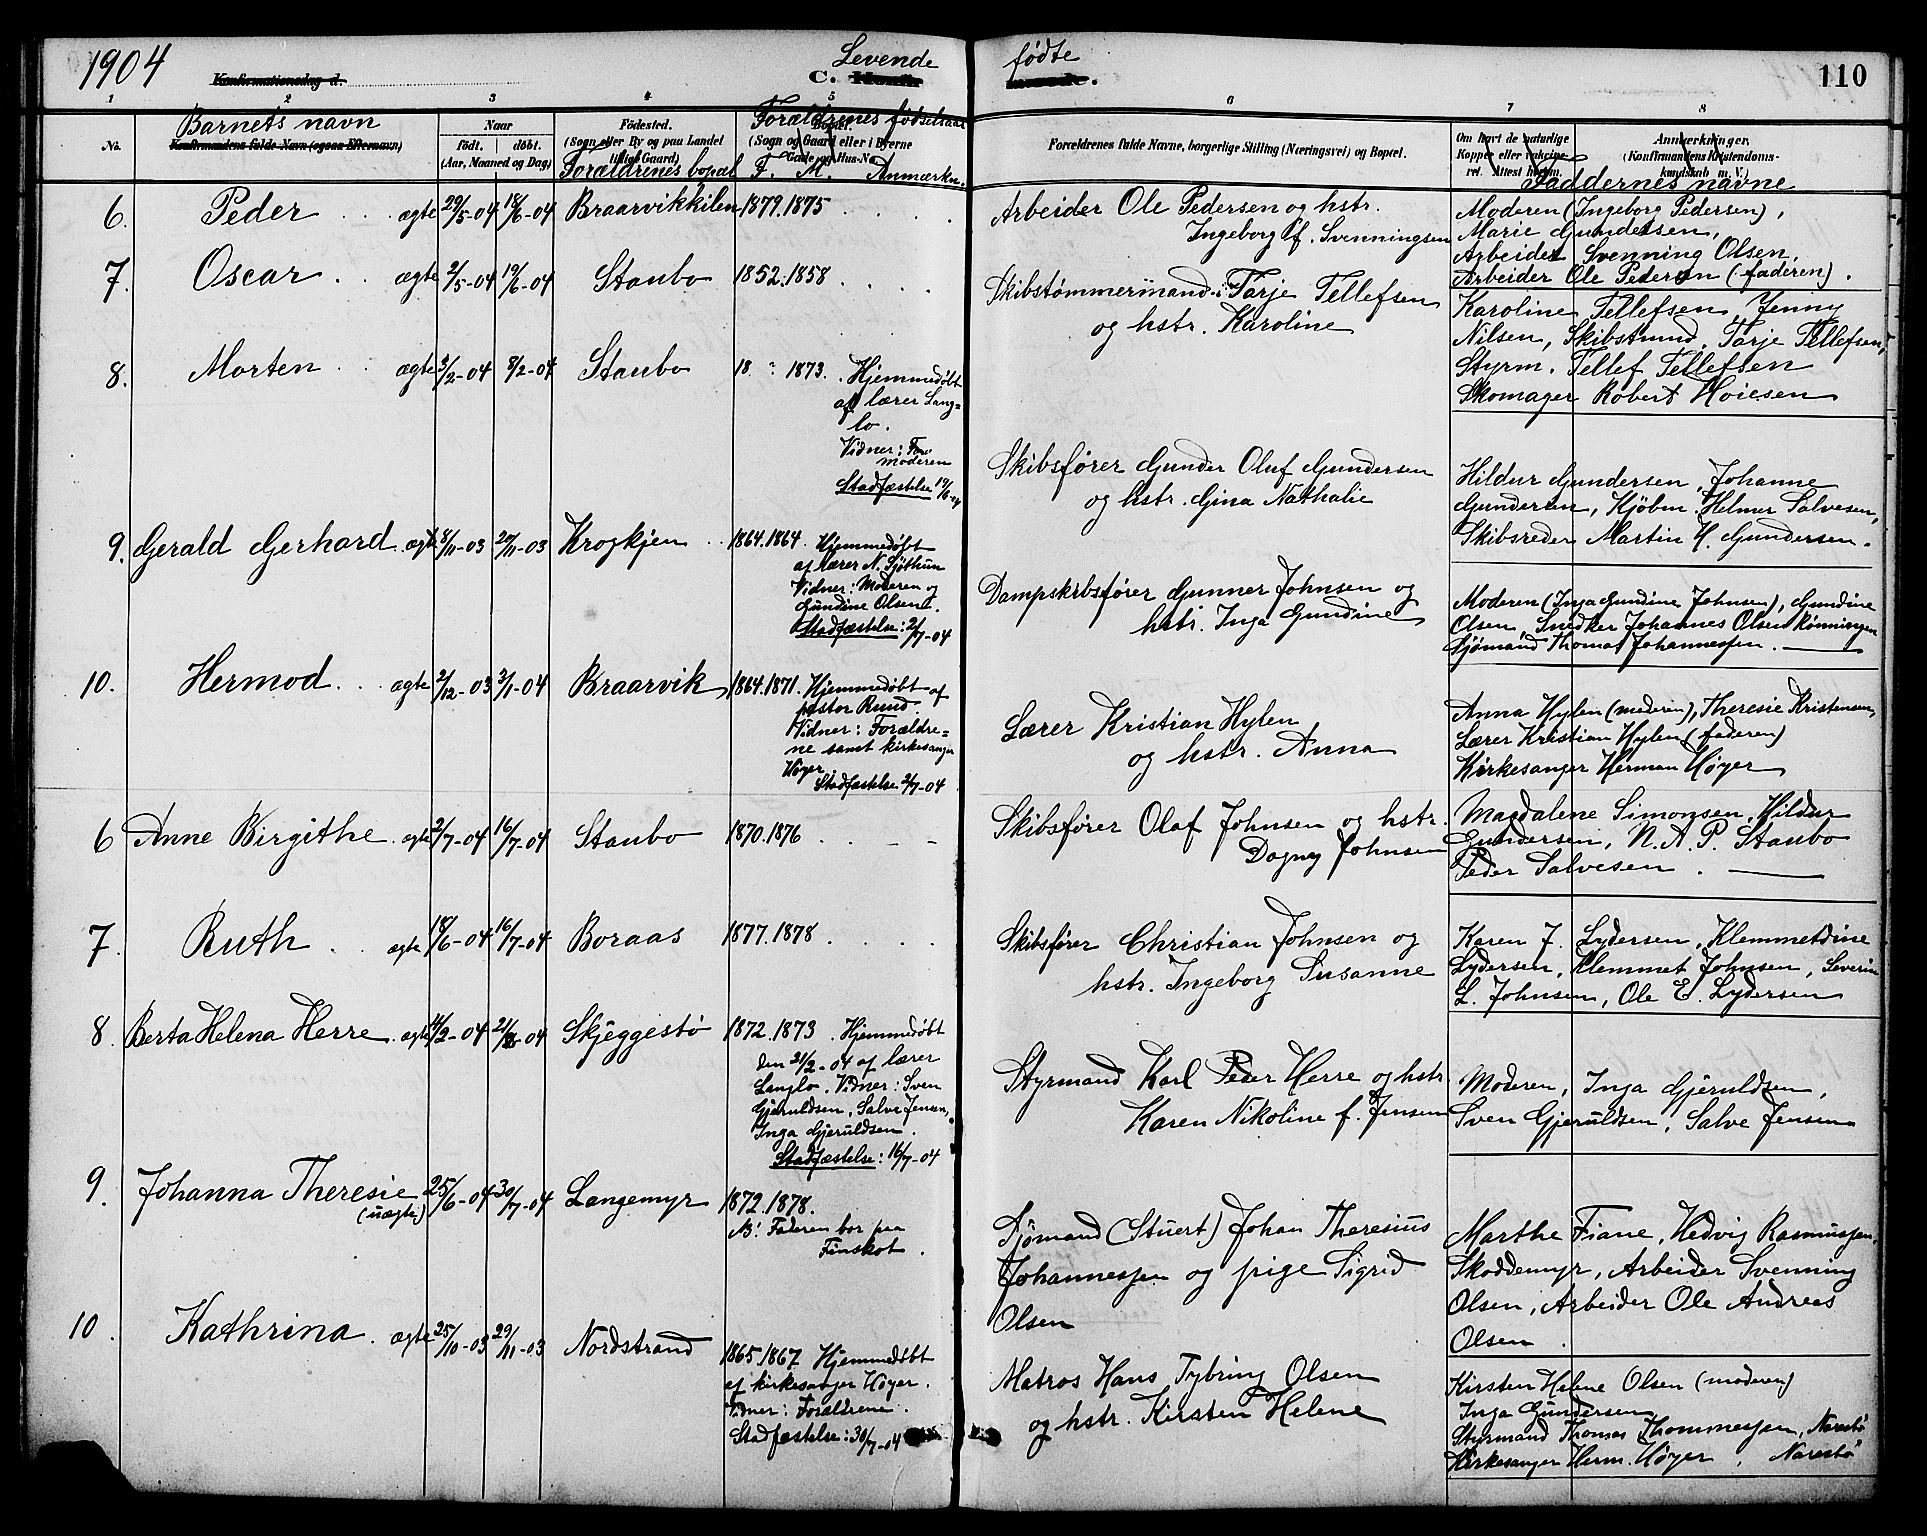 1904
Levende fødte
110
Konfirmationsdag d.
C.
1 2 3 4 5 6 7 8
No.
Barnets navn
Konfirmandens fulde Navn (ogsaa Efternavn)
Naar
født. døbt.
(Aar, Maaned og Dag)
Fødested.
(Sogn eller By og paa Landet tillige Gaard)
Forældrenes bopæl
Forældrenes fødselsaar
Bopæl.
(Sogn og Gaard eller i Byerne
Gade og Hus-No.
F. M. Anmærkn.
Forældrenes fulde Navne, borgerlige Stilling (Næringsvei) og Bopæl.
Om havt de naturlige
Kopper eller vakcine-
ret. Attest herom.
Anmærkninger,
(Konfirmandens Kristendoms-
kundskab m. V.)
Faddernes navne
6. Peder . . ægte 29/5-04 18/6-04 Braarvikkilen 1879. 1875 . . . .
Arbeider Ole Pedersen og hstr.
Ingeborg f. Svenningsen
Moderen (Ingeborg Pedersen),
Marie Gundersen,
Arbeider Svenning Olsen,
Arbeider Ole Pedersen (faderen).
7. Oscar . . ægte 2/5-04 19/6-04 Staubo 1852. 1858 . . . .
Skibstømmermand Tarje Tellefsen
og hstr. Karoline
Karoline Tellefsen, Jenny
Nilsen, Skibstmmd. Tarje Tellefsen,
Styrm. Tellef Tellefsen
Skomager Robert Hoiesen
8. Morten . . ægte 3/2-04 8/2-04 Staubo 18 " 1873. Hjemmedøbt
af lærer Lang-
lo.
Vidner: For
moderen
Stadfæstelse 19/6-04
Skibsfører Gunder Oluf Gundersen
og hstr. Gina Nathalie
Hildur Gundersen, Johanne
Gundersen, Kjøbm. Helmer Salvesen,
Skibsreder Martin H. Gundersen.
9. Gerald Gerhard. ægte 8/11-03 20/11-03 Krogkjen . . 1864. 1864. Hjemmedøbt
af lærer N. Sjøthun
Vidner: Moderen og
Gundine Olsen.
Stadfæstelse: 2/7-04
Dampskibsfører Gunner Johnsen og
hstr. Inga Gundine
Moderen (Inga Gundine Johnsen), Gundine
Olsen, Snedker Johannes Olsen Rønningen
Sjømand Thomas Johannessen.
10. Hermod . . ægte 2/12-03 3/1-04 Braarvik 1864. 1871. Hjemmedøbt af
pastor Ruud.
Vidner: Forældre-
ne samt kirkesanger
Høyer.
Stadfæstelse 2/7-04
Lærer Kristian Hylen
og hstr. Anna
Anna Hylen (moderen), Theresie Kristensen,
Lærer Kristian Hylen (faderen)
Kirkesanger Herman Høyer
6 Anne Birgithe . ægte 2/7-04 16/7-04 Staubo 1870. 1876 . . - -
Skibsfører Olaf Johnsen og hstr.
Dagny Johnsen
Magdalene Simonsen, Hildur
Gundersen, N. A. P. Staubo
Peder Salvesen .
7. Ruth . . ægte 18/6-04 16/7-04 Boraas 1877. 1878 . . . .
Skibsfører Christian Johnsen og
hstr. Ingeborg Susanne
Karen J. Lydersen, Klemmetdine
Lydersen, Klemmet Johnsen, Severin
L. Johnsen, Ole E. Lydersen
8. Berta Helena Herre . ægte 11/2-04 21/2-04 Skjeggestø 1872. 1873 . Hjemmedøbt
den 21/2-04 af lærer
Langlo. Vidner: Sven
Gjeruldsen, Salve Jensen,
Inga Gjeruldsen.
Stadfæstelse: 16/7-04
Styrmand Karl Peder Herre og hstr.
Karen Nikoline f. Jensen
Moderen, Inga Gjeruldsen,
Sven Gjeruldsen, Salve Jensen
9. Johanna Theresie 25/6-04 30/7-04 Langemyr 1872. 1878.
(uægte)
N.: Faderen bor paa
Finskot .
Sjømand (Stuert) Johan Theresius
Johannessen og pige Sigrid
Olsen
Marthe Fiane, Hedvig Rasmussen,
Skoddemyr, Arbeider Svenning
Olsen, Arbeider Ole Andreas
Olsen .
10. Kathrina . ægte 25/10-03 29/11-03 Nordstrand 1865. 1867 Hjemmedøbt
af kirkesanger Høyer.
Vidner: Forældrene.
Stadfæstelse: 30/7-04
Matros Hans Tybring Olsen
og hstr. Kirsten Helene
Kirsten Helene Olsen (moderen)
Inga Gundersen
Styrmand Thomas Thommessen, Narestø
Kirkesanger Herm. Høyer, Narestø